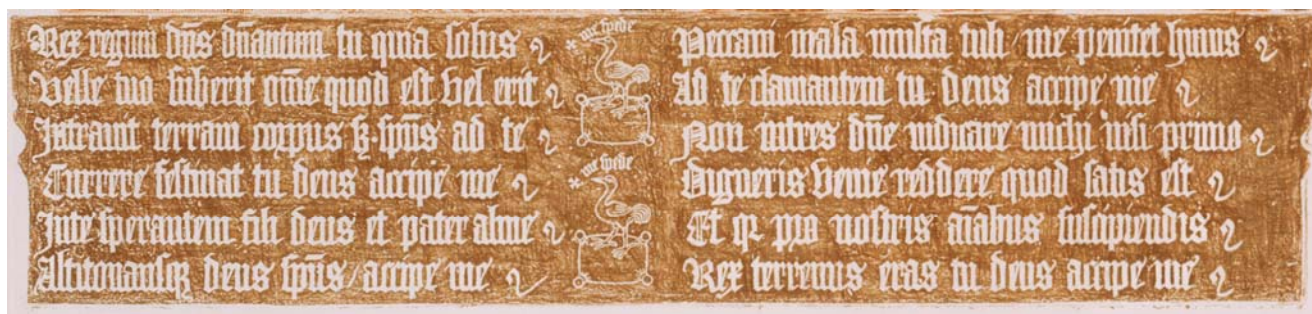 Rex regum dn̄s dn̄antium tu quia solus
Velle tuo suberit om̄e quod est vel erit
Intrauit terram corpus sꝫ sp̄us ad te
Currere festinat tu deus accipe me
In te sperantem fili deus et pater alme
Altitonansqꝫ deus sp̄us / accipe me
me spede
me spede
Peccaui mala multa tuli / me penitet huius
Ad te clamantem tu deus accipe me
Non intres dn̄e iudicare michi nisi primo
Digneris venie reddere quod satis est
Et qꝛ pro nostris aīabus suscipiendis
Rex terrenus eras tu deus accipe me